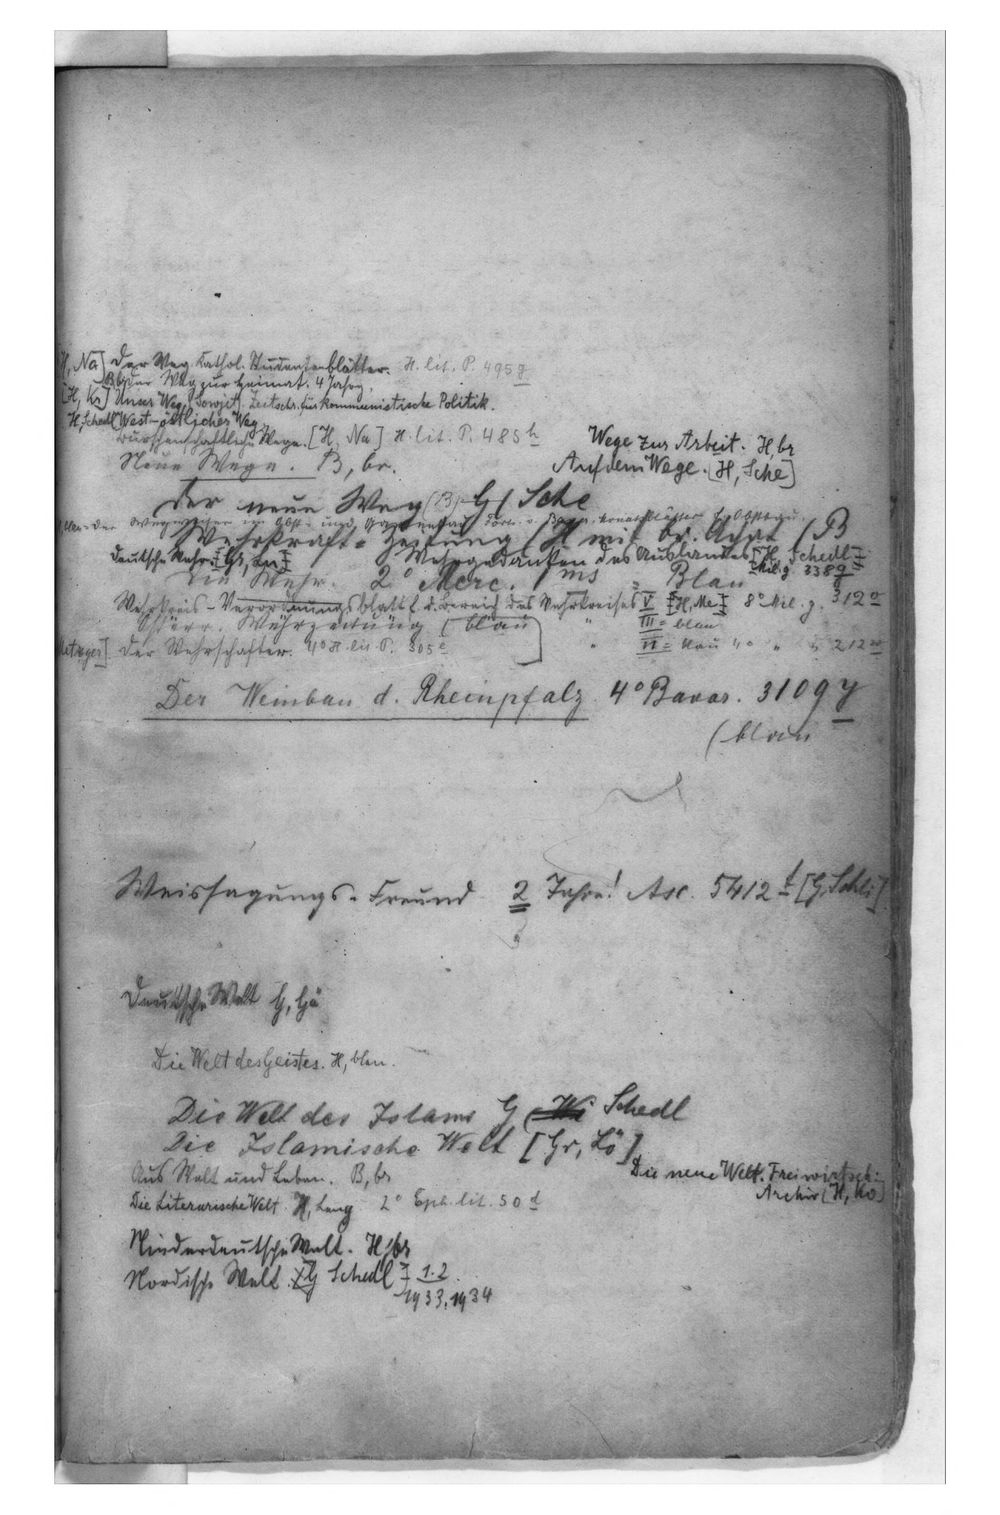 H, Na] Der Weg. Kathol. Studentenblätter. H. lit. P. 495 g
B, b, Der Weg zur Heimat. 4 Jahrg.
[H, Kr] Unser Weg, (Sowjet) Zeitschr. für kommunistische Politik.
H, Schedl (West-östlicher Weg.
Burschenschaftliche Wege. [H, Na] H. lit. P. 485 h
Wege zur Arbeit. H, br
Neue Wege. B, br.
Auf dem Wege. [H, Sche]
Der neue Weg (B) G (Sche
Wehrkraft-Zeitung (H mit br.
(B
Deutsche Wehr.
Wehrgedanken des Auslandes [H, Schedl]
Mil. g. 338 q
Die Wehr. 2° Merc. Blau
Wehrkreis-Verordnungsblatt f. d. Bereich des Wehrkreises V [H, Me] 8° Mil. g. 312
III = blau
Österr. Wehrzeitung (blau)
VI = blau 4° " " 212
Metzger] Der Wehrschafter. 4° H. lit. P. 305
Der Weinbau d. Rheinpfalz 4° Bavar. 3109 y
(blau
Weissagungs-Freund 2 Jahre! Asc. 5412 t [G, Schli]
Deutsche Welt G, Gö
Die Welt des Geistes. H, blau.
Die Welt des Islams G Schedl
Die Islamische Welt [Gr, Lö]
Aus Welt und Leben. B, br
Die neue Welt. Freiwirtsch.
Archiv [H, Ko]
Die Literarische Welt. H, Lang 2° Eph. lit. 50 d
Niederdeutsche Welt. H, br
Nordische Welt. [G Schedl] 1.2
1933. 1934